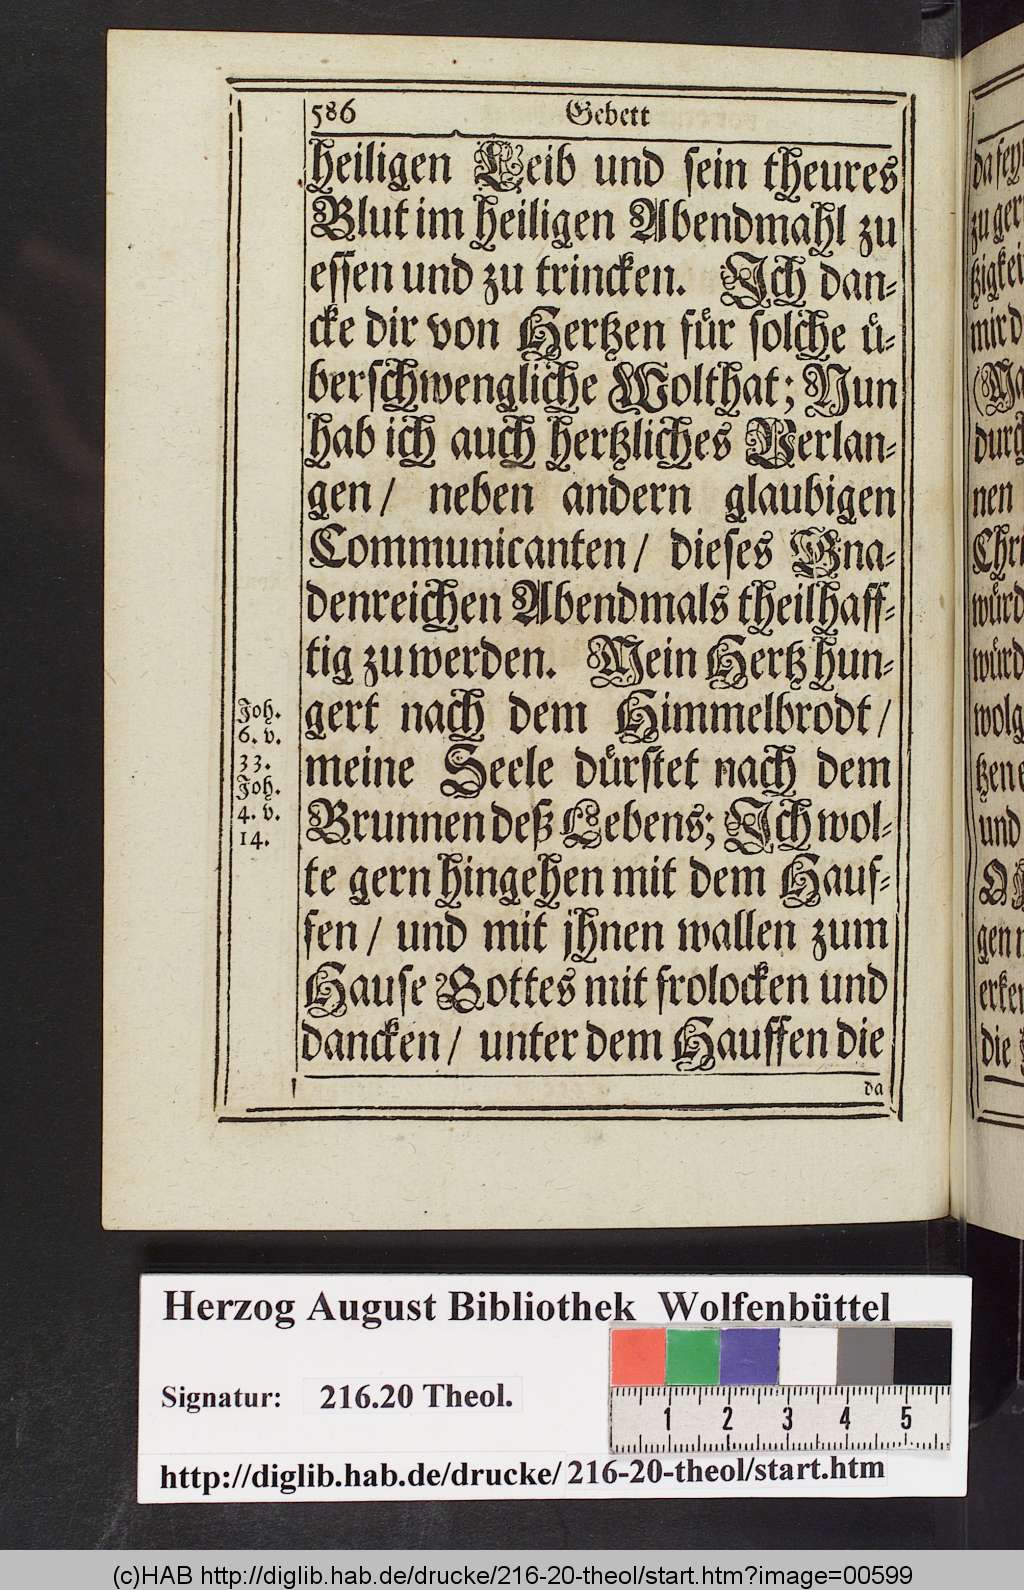 586 Gebett
heiligen Leib und sein theures
Blut im heiligen Abendmahl zu
essen und zu trincken. Ich dan-
cke dir von Hertzen für solche ü-
berschwengliche Wolthat; Nun
hab ich auch hertzliches Verlan-
gen / neben andern glaubigen
Communicanten / dieses Gna-
denreichen Abendmals theilhaff-
tig zu werden. Mein Hertz hun-
gert nach dem Himmelbrodt /
meine Seele dürstet nach dem
Brunnen deß Lebens; Ich wol-
te gern hingehen mit dem Hauf-
fen / und mit jhnen wallen zum
Hause Gottes mit frolocken und
dancken / unter dem Hauffen die
da
Joh.
6. v.
33.
Joh.
4. v.
14.
zu ger
tzigkei
mir d
(Ma
durch
nen
Chri
würd
würd
wolg
tzen e
und
gen n
erken
die
Herzog August Bibliothek Wolfenbüttel
Signatur: 216.20 Theol.
1 2 3 4 5
http://diglib.hab.de/drucke/216-20-theol/start.htm
(c)HAB http://diglib.hab.de/drucke/216-20-theol/start.htm?image=00599